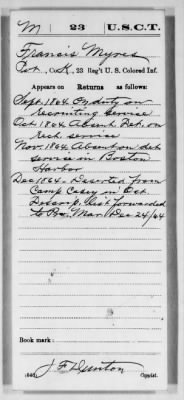 M | 23 | U.S.C.T.
Francis Myres
Pvt., Co. K, 23 Reg't U. S. Colored Inf.
Appears on Returns as follows:
Sept. 1864. On duty on
recruiting service
Oct. 1864. Absent. Det. on
recr. service
Nov. 1864. Absent on det.
service in Boston
Harbor
Dec 1864. Deserted from
Camp Casey in Oct.
Descrip. list forwarded
to Pro. Mar. Dec 24/64
Book mark:
J. F. Dunton
(546) Copyist.